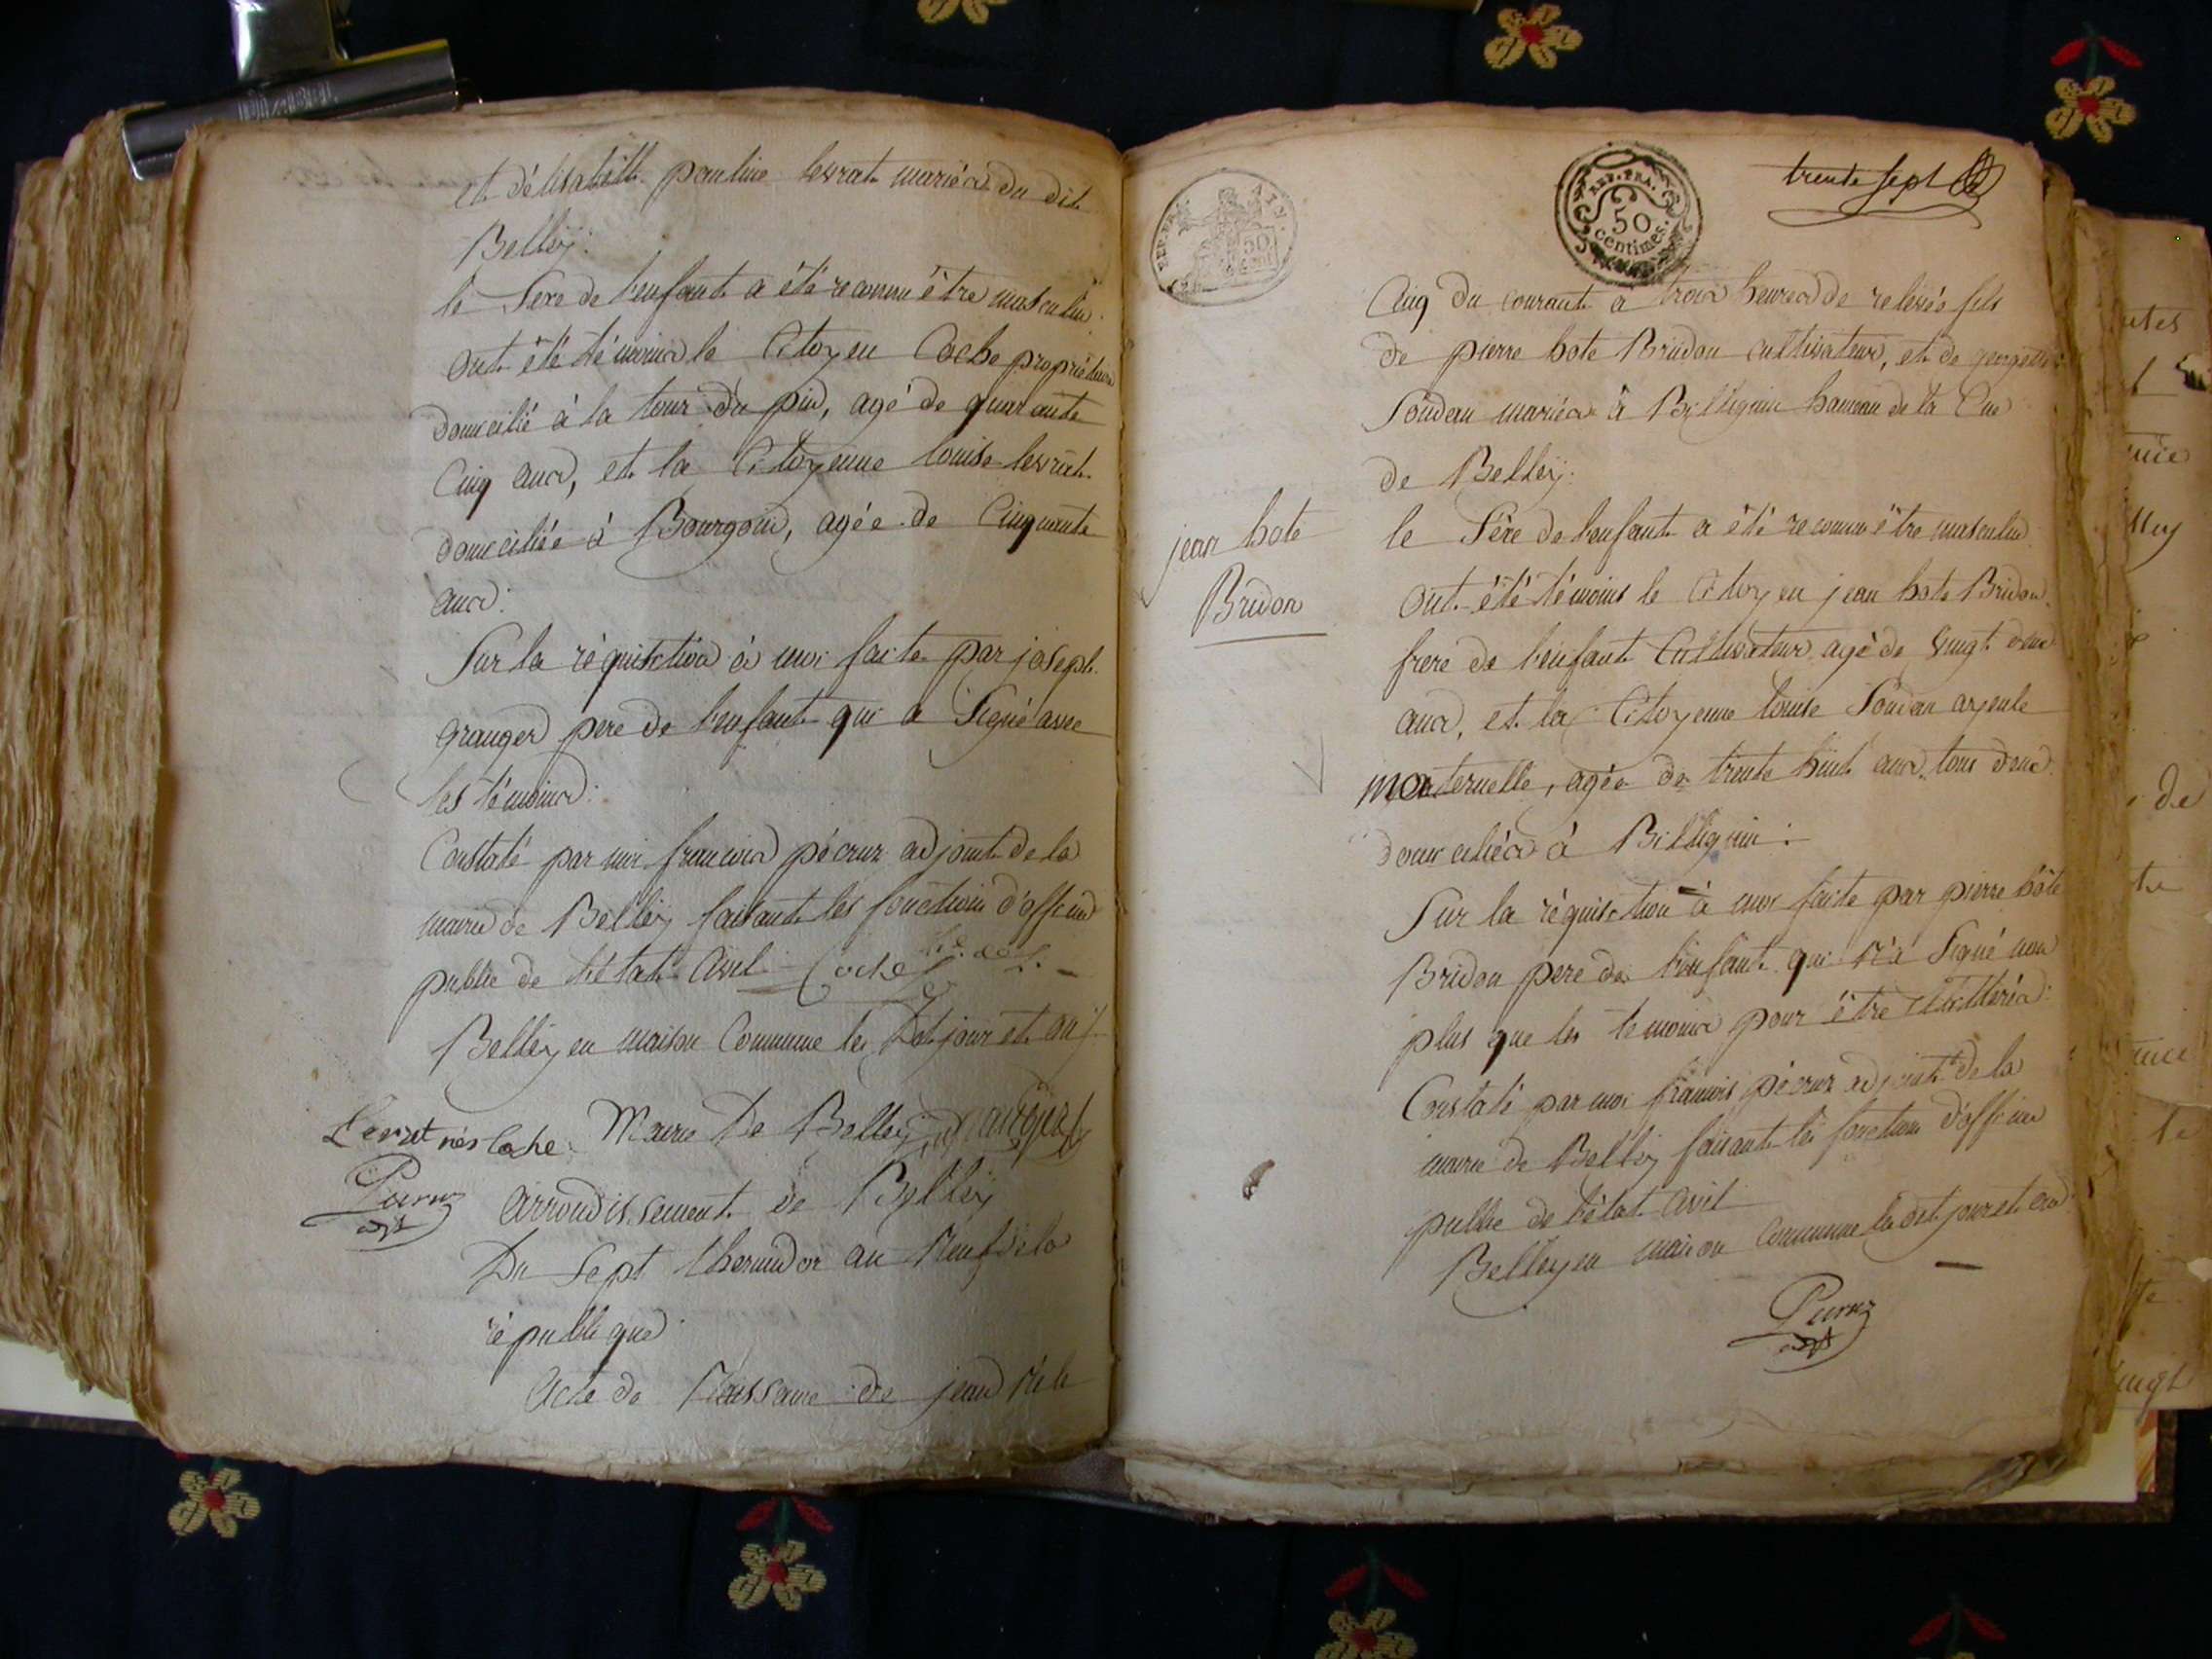 et d'élisabeth pauline levrat mariés du dit
Belley:
le Sexe de l'enfant a été reconnu être masculin.
ont été témoins le Citoyen Coche propriétaire
domicilié à la tour du pin, agé de quarante
Cinq ans, et la Citoyenne louise levrat
domiciliée à Bourgoin, agée de Cinquante
ans:
Sur la réquisition à moi faite par joseph
granger pere de l'enfant qui a Signé avec
les témoins:
Constaté par moi francois pécruz adjoint de la
mairie de Belley faisant les fonctions d'officier
public de l'état Civil Coche
Belley en maison Commune les dit jour et an
Levrat née Coche Mairie De Belley granger
Pecruz
adjt
arrondissement de Belley
Du Sept thermidor an Neuf de la
république
Acte de Naissance de jean Né le
REP. FRA. AIN. 50 cent
REP. FRA.
50
centimes.
trente sept
Cinq du courant a trois heures de relevée fils
de pierre hote Bridon cultivateur, et de georgette
Soudan mariés à Billignin hameau de la Cne
de Belley:
jean hote
Bridon
le Sexe de l'enfant a été reconnu être masculin
ont été témoins le Citoyen jean hote Bridon
frere de l'enfant Cultivateur agé de Vingt deux
ans, et la Citoyenne louise Soudan ayeule
maternelle, agée de trente huit ans, tous deux
domiciliés à Billignin:
Sur la réquisition à moi faite par pierre hôte
Bridon pere de l'enfant qui n'a Signé non
plus que les temoins pour être illitérés:
Constaté par moi francois pécruz adjoint de la
mairie de Belley faisant les fonctions d'officier
public de l'état Civil
Belley en maison Commune les dit jour et an
Pecruz
adjt